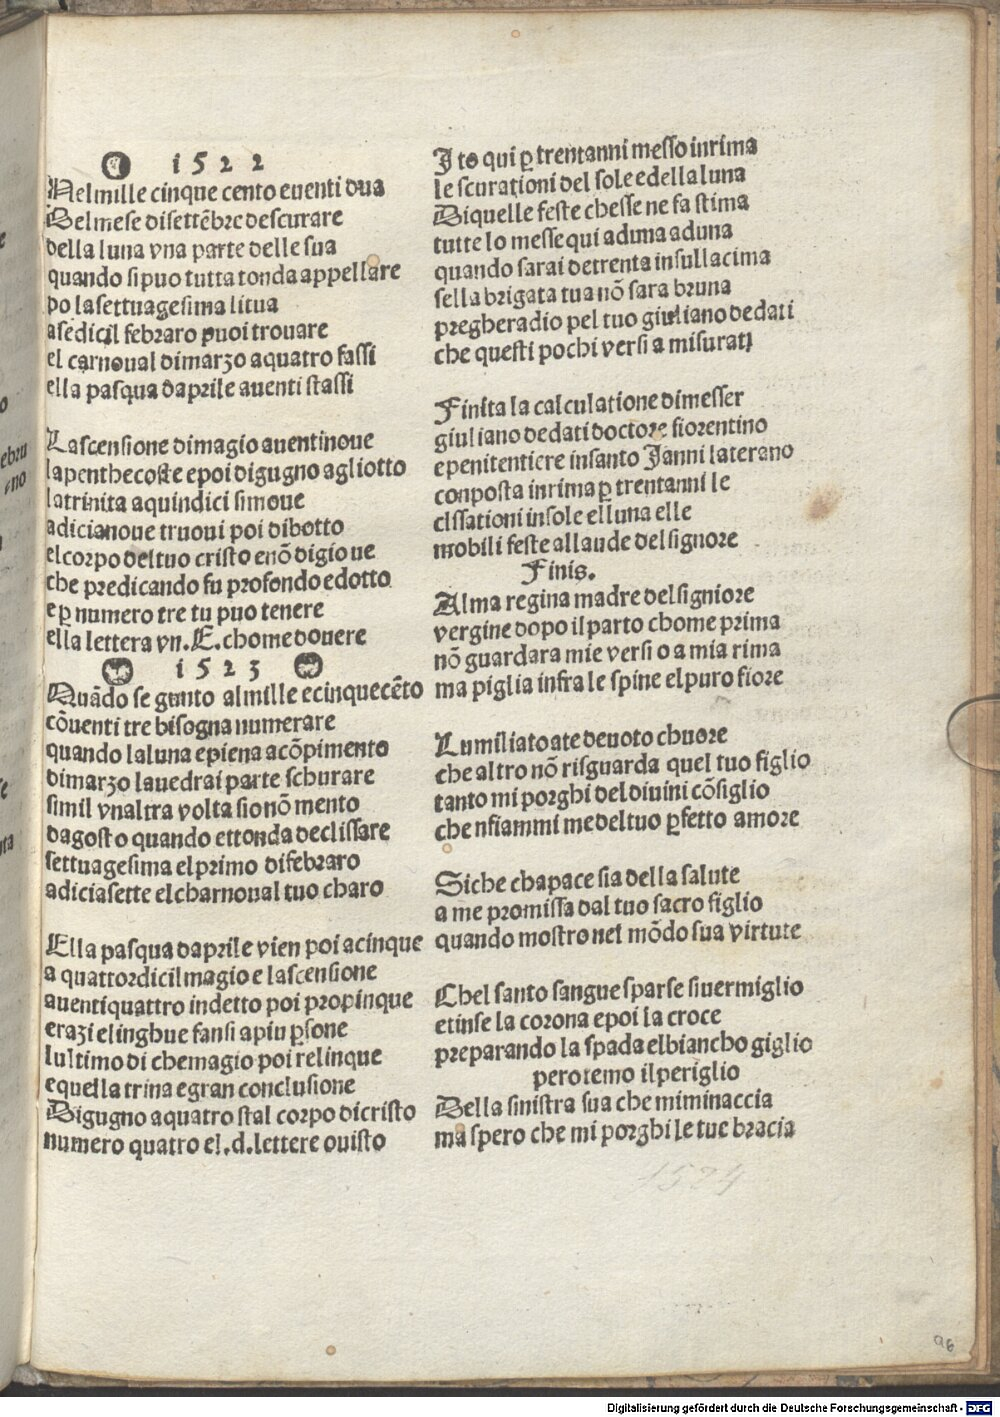 1522
Nelmille cinque cento euenti dua
Delmese disettēbre descurare
della luna vna parte delle sua
quando sipuo tutta tonda appellare
po lasettuagesima litua
asedicil febraro puoi trouare
el carnoual dimarzo aquatro fassi
ella pasqua daprile auenti stassi
Lascensione dimagio auentinoue
lapenthecoste epoi digugno agliotto
latrinita aquindici simoue
adicianoue truoui poi dibotto
elcorpo deltuo cristo enō digioue
che predicando fu profondo edotto
e ꝑ numero tre tu puo tenere
ella lettera vn.E.chome douere
1523
Quādo se gunto almille ecinquecēto
cōuenti tre bisogna numerare
quando laluna epiena acōpimento
dimarzo lauedrai parte schurare
simil vnaltra volta sionō mento
dagosto quando ettonda declissare
settuagesima elprimo difebraro
adiciasette elcharnoual tuo charo
Ella pasqua daprile vien poi acinque
a quattordicilmagio e lascensione
auentiquattro indetto poi propinque
erazi elinghue fansi apiu ꝑsone
lultimo di chemagio poi relinque
equella trina egran conclusione
Digugno aquatro stal corpo dicristo
numero quatro el.d.lettere ouisto
Ito qui ꝑ trentanni messo inrima
le scurationi del sole edella luna
Diquelle feste chesse ne fa stima
tutte lo messe qui aduna aduna
quando sarai detrenta insullacima
sella brigata tua nō sara bruna
pregheradio pel tuo giuliano dedati
che questi pochi versi a misurati
Finita la calculatione dimesser
giuliano dedati doctore fiorentino
epenitentiere insanto Janni laterano
conposta inrima ꝑ trentanni le
clssationi insole elluna elle
mobili feste allaude del signore
Finis.
Alma regina madre delsigniore
vergine dopo il parto chome prima
nō guardara mie versi o a mia rima
ma piglia infra le spine elpuro fiore
Lumiliato ate deuoto chuore
che altro nō risguarda quel tuo figlio
tanto mi porghi del diuini cōsiglio
che nfiammi me deltuo ꝑfetto amore
Siche chapace sia della salute
a me promissa dal tuo sacro figlio
quando mostro nel mōdo sua virtute
Chel santo sangue sparse si uermiglio
etinse la corona epoi la croce
preparando la spada elbiancho giglio
pero temo il periglio
Della sinistra sua che miminaccia
ma spero che mi porghi le tue bracia
1524
96
Digitalisierung gefördert durch die Deutsche Forschungsgemeinschaft - DFG